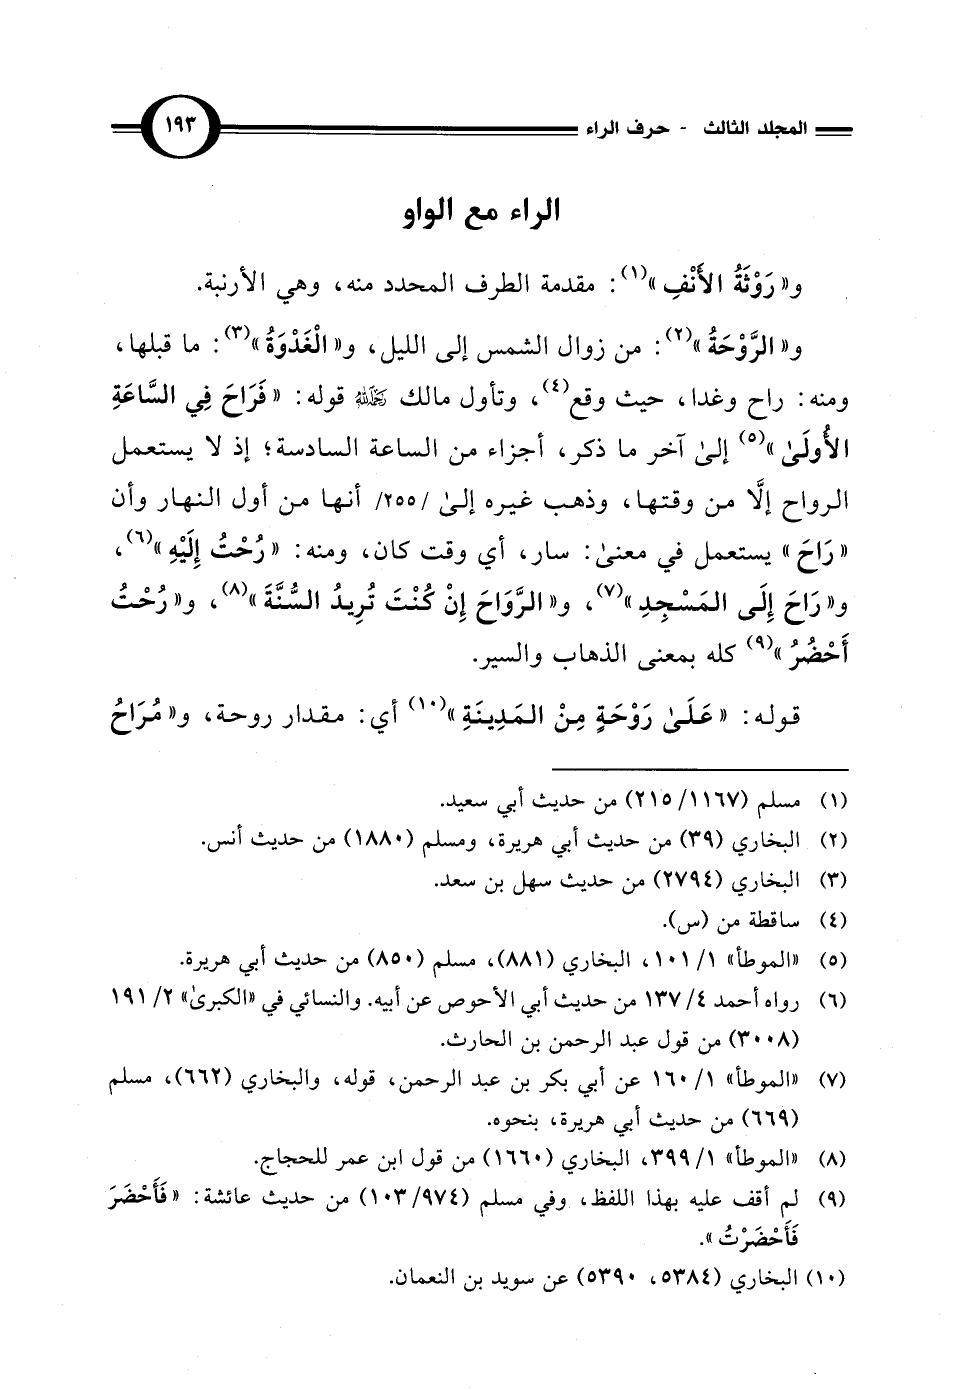 المجلد الثالث - حرف الراء
١٩٣
الراء مع الواو
و«رَوْثَةُ الأَنْفِ»(١): مقدمة الطرف المحدد منه، وهي الأرنبة.
و«الرَّوْحَةُ»(٢): من زوال الشمس إلى الليل، و«الْغَدْوَةُ»(٣): ما قبلها،
ومنه: راح وغدا، حيث وقع(٤)، وتأول مالك رحمه الله قوله: «فَرَاحَ فِي السَّاعَةِ
الأُولَىٰ»(٥) إلىٰ آخر ما ذكر، أجزاء من الساعة السادسة؛ إذ لا يستعمل
الرواح إلَّا من وقتها، وذهب غيره إلىٰ /٢٥٥/ أنها من أول النهار وأن
«رَاحَ» يستعمل في معنىٰ: سار، أي وقت كان، ومنه: «رُحْتُ إِلَيْهِ»(٦)،
و«رَاحَ إِلَى المَسْجِدِ»(٧)، و«الرَّوَاحَ إِنْ كُنْتَ تُرِيدُ السُّنَّةَ»(٨)، و«رُحْتُ
أَحْضُرُ»(٩) كله بمعنى الذهاب والسير.
قوله: «عَلَىٰ رَوْحَةٍ مِنْ المَدِينَةِ»(١٠) أي: مقدار روحة، و«مُرَاحُ
(١) مسلم (٢١٥/١١٦٧) من حديث أبي سعيد.
(٢) البخاري (٣٩) من حديث أبي هريرة، ومسلم (١٨٨٠) من حديث أنس.
(٣) البخاري (٢٧٩٤) من حديث سهل بن سعد.
(٤) ساقطة من (س).
(٥) «الموطأ» ١/ ١٠١، البخاري (٨٨١)، مسلم (٨٥٠) من حديث أبي هريرة.
(٦) رواه أحمد ٤/ ١٣٧ من حديث أبي الأحوص عن أبيه. والنسائي في «الكبرىٰ» ٢/ ١٩١
(٣٠٠٨) من قول عبد الرحمن بن الحارث.
(٧) «الموطأ» ١/ ١٦٠ عن أبي بكر بن عبد الرحمن، قوله، والبخاري (٦٦٢)، مسلم
(٦٦٩) من حديث أبي هريرة، بنحوه.
(٨) «الموطأ» ١/ ٣٩٩، البخاري (١٦٦٠) من قول ابن عمر للحجاج.
(٩) لم أقف عليه بهذا اللفظ، وفي مسلم (١٠٣/٩٧٤) من حديث عائشة: «فَأَحْضَرَ
فَأَحْضَرْتُ».
(١٠) البخاري (٥٣٨٤، ٥٣٩٠) عن سويد بن النعمان.